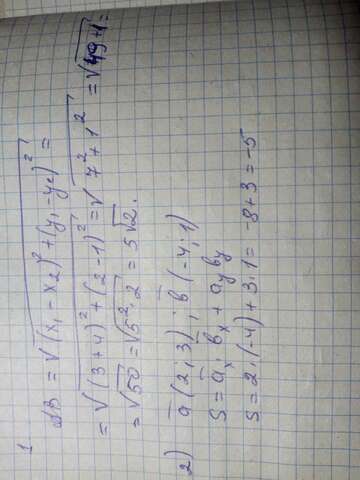 1
AB = √(x₁ - x₂)² + (y₁ - y₂)² =
= √(3+4)² + (2-1)² = √7² + 1² = √49+1 =
= √50 = √5²·2 = 5√2.
2) a(2; 3); b(-4; 1)
S = aₓ·bₓ + a_y b_y
S = 2·(-4) + 3·1 = -8+3 = -5